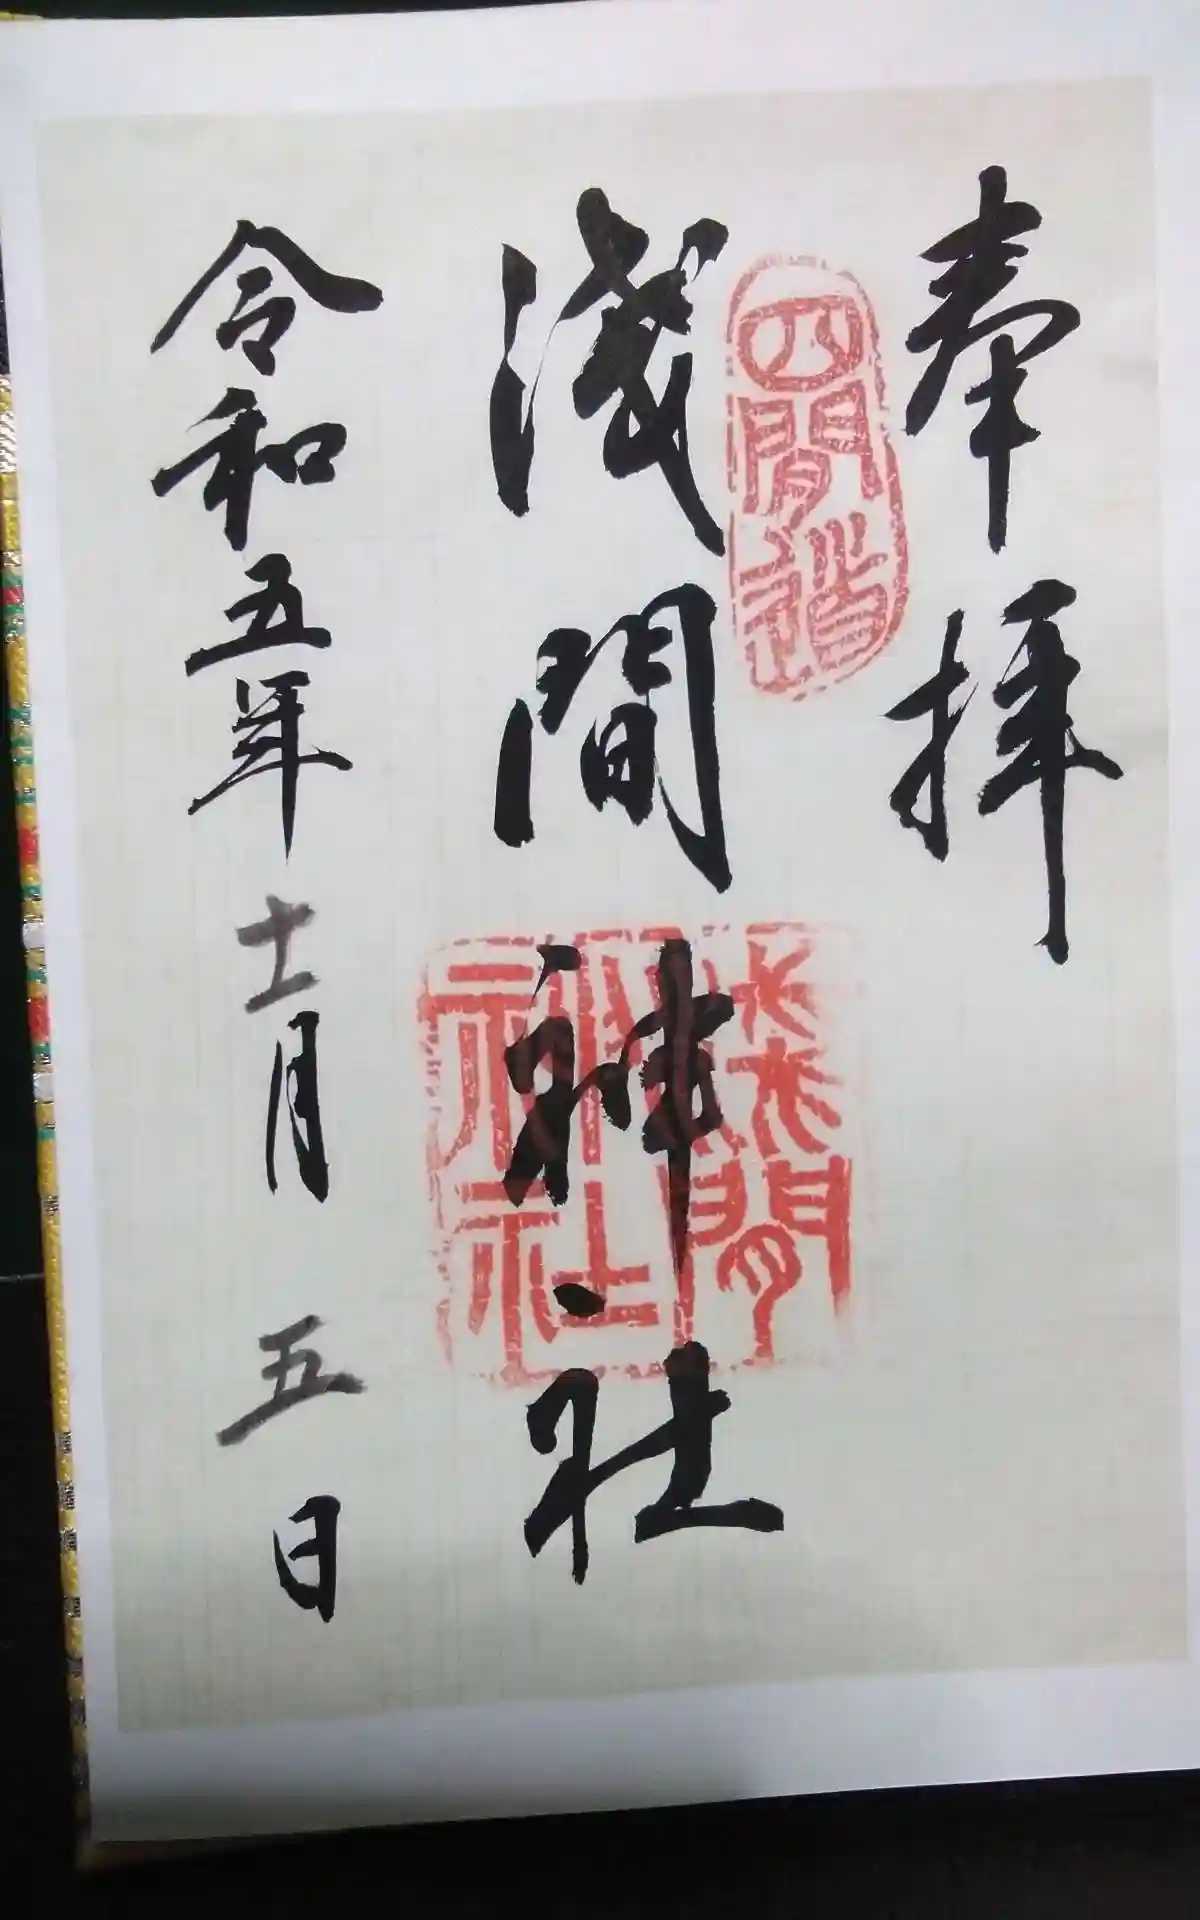 奉拝
四間道
淺間神社
淺間神社
令和五年十一月五日